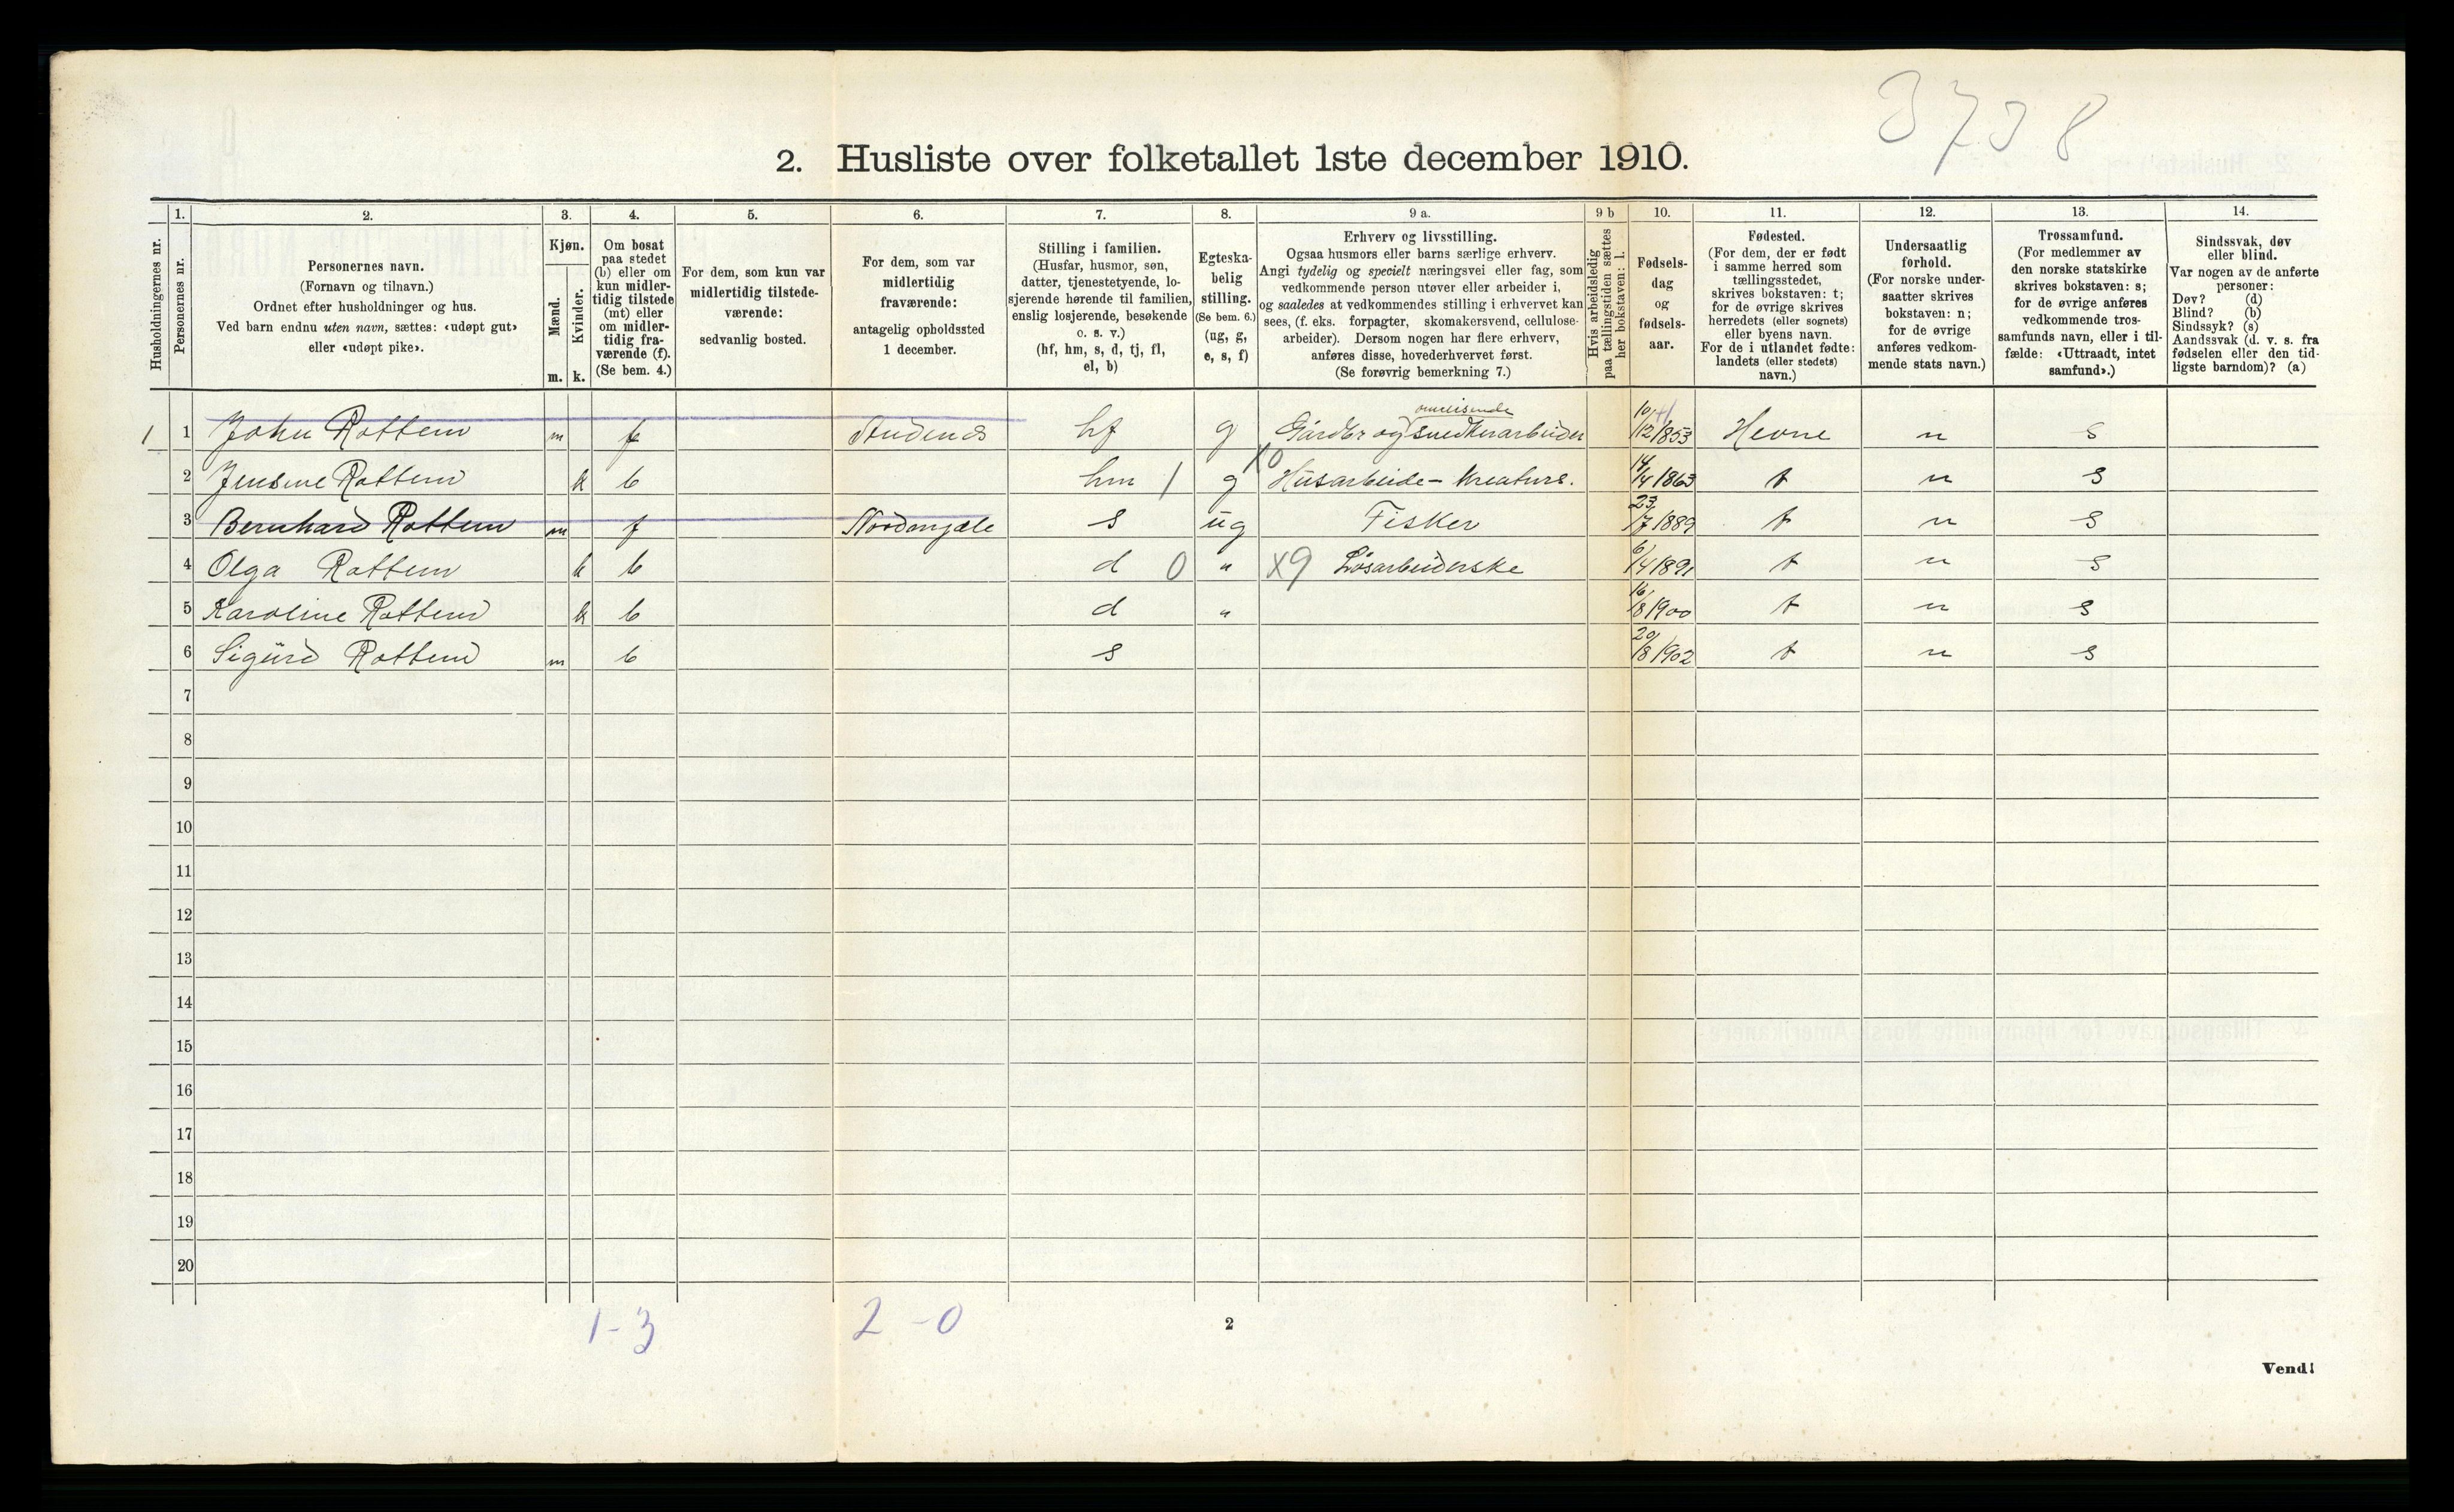 3738
2. Husliste over folketallet 1ste december 1910.
Husholdningernes nr.
1.
Personernes nr.
2.
Personernes navn.
(Fornavn og tilnavn.)
Ordnet efter husholdninger og hus.
Ved barn endnu uten navn, sættes: «udøpt gut»
eller «udøpt pike».
3.
Kjøn.
Mænd.
Kvinder.
m. k.
4.
Om bosat
paa stedet
(b) eller om
kun midler-
tidig tilstede
(mt) eller
om midler-
tidig fra-
værende (f).
(Se bem. 4.)
5.
For dem, som kun var
midlertidig tilstede-
værende:
sedvanlig bosted.
6.
For dem, som var
midlertidig
fraværende:
antagelig opholdssted
1 december.
7.
Stilling i familien.
(Husfar, husmor, søn,
datter, tjenestetyende, lo-
sjerende hørende til familien,
enslig losjerende, besøkende
o. s. v.)
(hf, hm, s, d, tj, fl,
el, b)
8.
Egteska-
belig
stilling.
(Se bem. 6.)
(ug, g,
e, s, f)
9 a.
Erhverv og livsstilling.
Ogsaa husmors eller barns særlige erhverv.
Angi tydelig og specielt næringsvei eller fag, som
vedkommende person utøver eller arbeider i,
og saaledes at vedkommendes stilling i erhvervet kan
sees, (f. eks. forpagter, skomakersvend, cellulose-
arbeider). Dersom nogen har flere erhverv,
anføres disse, hovederhvervet først.
(Se forøvrig bemerkning 7.)
9 b
Hvis arbeidsledig
paa tællingstiden sættes
her bokstaven: l.
10.
Fødsels-
dag
og
fødsels-
aar.
11.
Fødested.
(For dem, der er født
i samme herred som
tællingsstedet,
skrives bokstaven: t;
for de øvrige skrives
herredets (eller sognets)
eller byens navn.
For de i utlandet fødte:
landets (eller stedets)
navn.)
12.
Undersaatlig
forhold.
(For norske under-
saatter skrives
bokstaven: n;
for de øvrige
anføres vedkom-
mende stats navn.)
13.
Trossamfund.
(For medlemmer av
den norske statskirke
skrives bokstaven: s;
for de øvrige anføres
vedkommende tros-
samfunds navn, eller i til-
fælde: «Uttraadt, intet
samfund».)
14.
Sindssvak, døv
eller blind.
Var nogen av de anførte
personer:
Døv? (d)
Blind? (b)
Sindssyk? (s)
Aandssvak (d. v. s. fra
fødselen eller den tid-
ligste barndom)? (a)
omreisende
1 1 John Rottem m f hf g Gårdbr og snedkerarbeider 10/12 1853 Hevne n s
2 Jensine Rottem k b hm 1 g X0 Husarbeide - kreaturs. 14/4 1863 t n s
3 Bernhard Rottem m f s ug Fisker 23/7 1889 t n s
4 Olga Rottem k b d 0 " X9 Løsarbeiderske 6/4 1891 t n s
5 Karoline Rottem k b d " 16/8 1900 t n s
6 Sigurd Rottem m b s 20/8 1902 t n s
7
8
9
10
11
12
13
14
15
16
17
18
19
20
1-3 2-0
2
Vend!